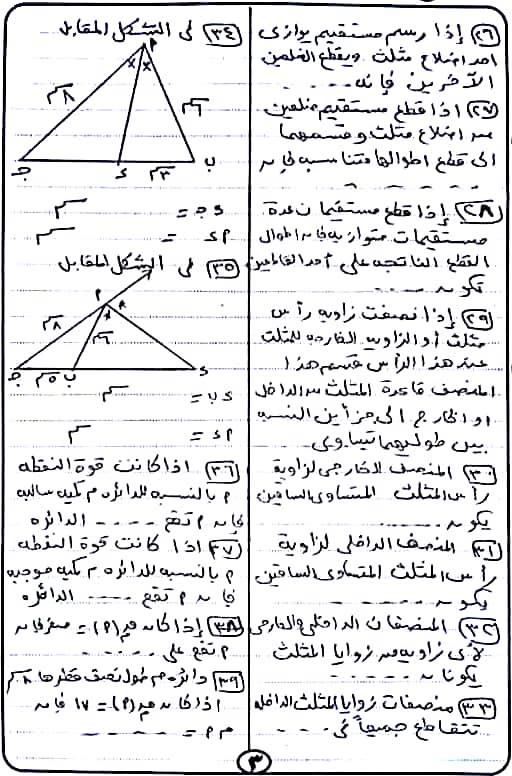 ٢٦ إذا رسم مستقيم يوازى
احد اضلاع مثلث ويقطع الضلعين
الآخرين فإنه ....
٢٧ اذا قطع مستقيم ضلعين
من اضلاع مثلث وقسمهما
الى قطع اطوالها متناسبه فإنه
....
٢٨ إذا قطع مستقيمان عدة
مستقيمات متوازيه فإنه اطوال
القطع الناتجه على أحد القاطعين
تكونه ....
٢٩ إذا نصفت زاويه رأس
مثلث أو الزاويه الخارجه للمثلث
عند هذا الرأس قسم هذا
المنصف قاعدة المثلث من الداخل
او الخارج الى جزأين النسبه
بين طوليهما تساوى
٣٠ المنصف الخارجى لزاوية
رأس المثلث المتساوى الساقين
يكونه ....
٣١ المنصف الداخلى لزاوية
رأس المثلث المتساوى الساقين
يكونه ....
٣٢ المنصفات الداخلى والخارجى
لأى زاويه من زوايا المثلث
يكونانه ....
٣٣ منصفات زوايا المثلث الداخله
تتقاطع جميعاً فى ....
٣٤ فى الشكل المقابل
م
x x
٨سم ٦سم
جـ ء ٣سم ب
ء جـ = سم
م ء = سم
٣٥ فى الشكل المقابل
م
٨سم ٦سم
جـ ٥سم ب ء
ء ب = سم
م ء = سم
٣٦ اذا كانت قوة النقطه
م بالنسبه للدائره م كميه سالبه
فإنه م تقع .... الدائره
٣٧ اذا كانت قوة النقطه
م بالنسبه للدائره م كميه موجبه
فإنه م تقع .... الدائره
٣٨ إذا كانه قم(م) = صفر فإنه
م تقع على ....
٣٩ دائره م طول نصف قطرها ٨سم
اذا كانه قم(م) = ١٧ فإنه
م م =
٣